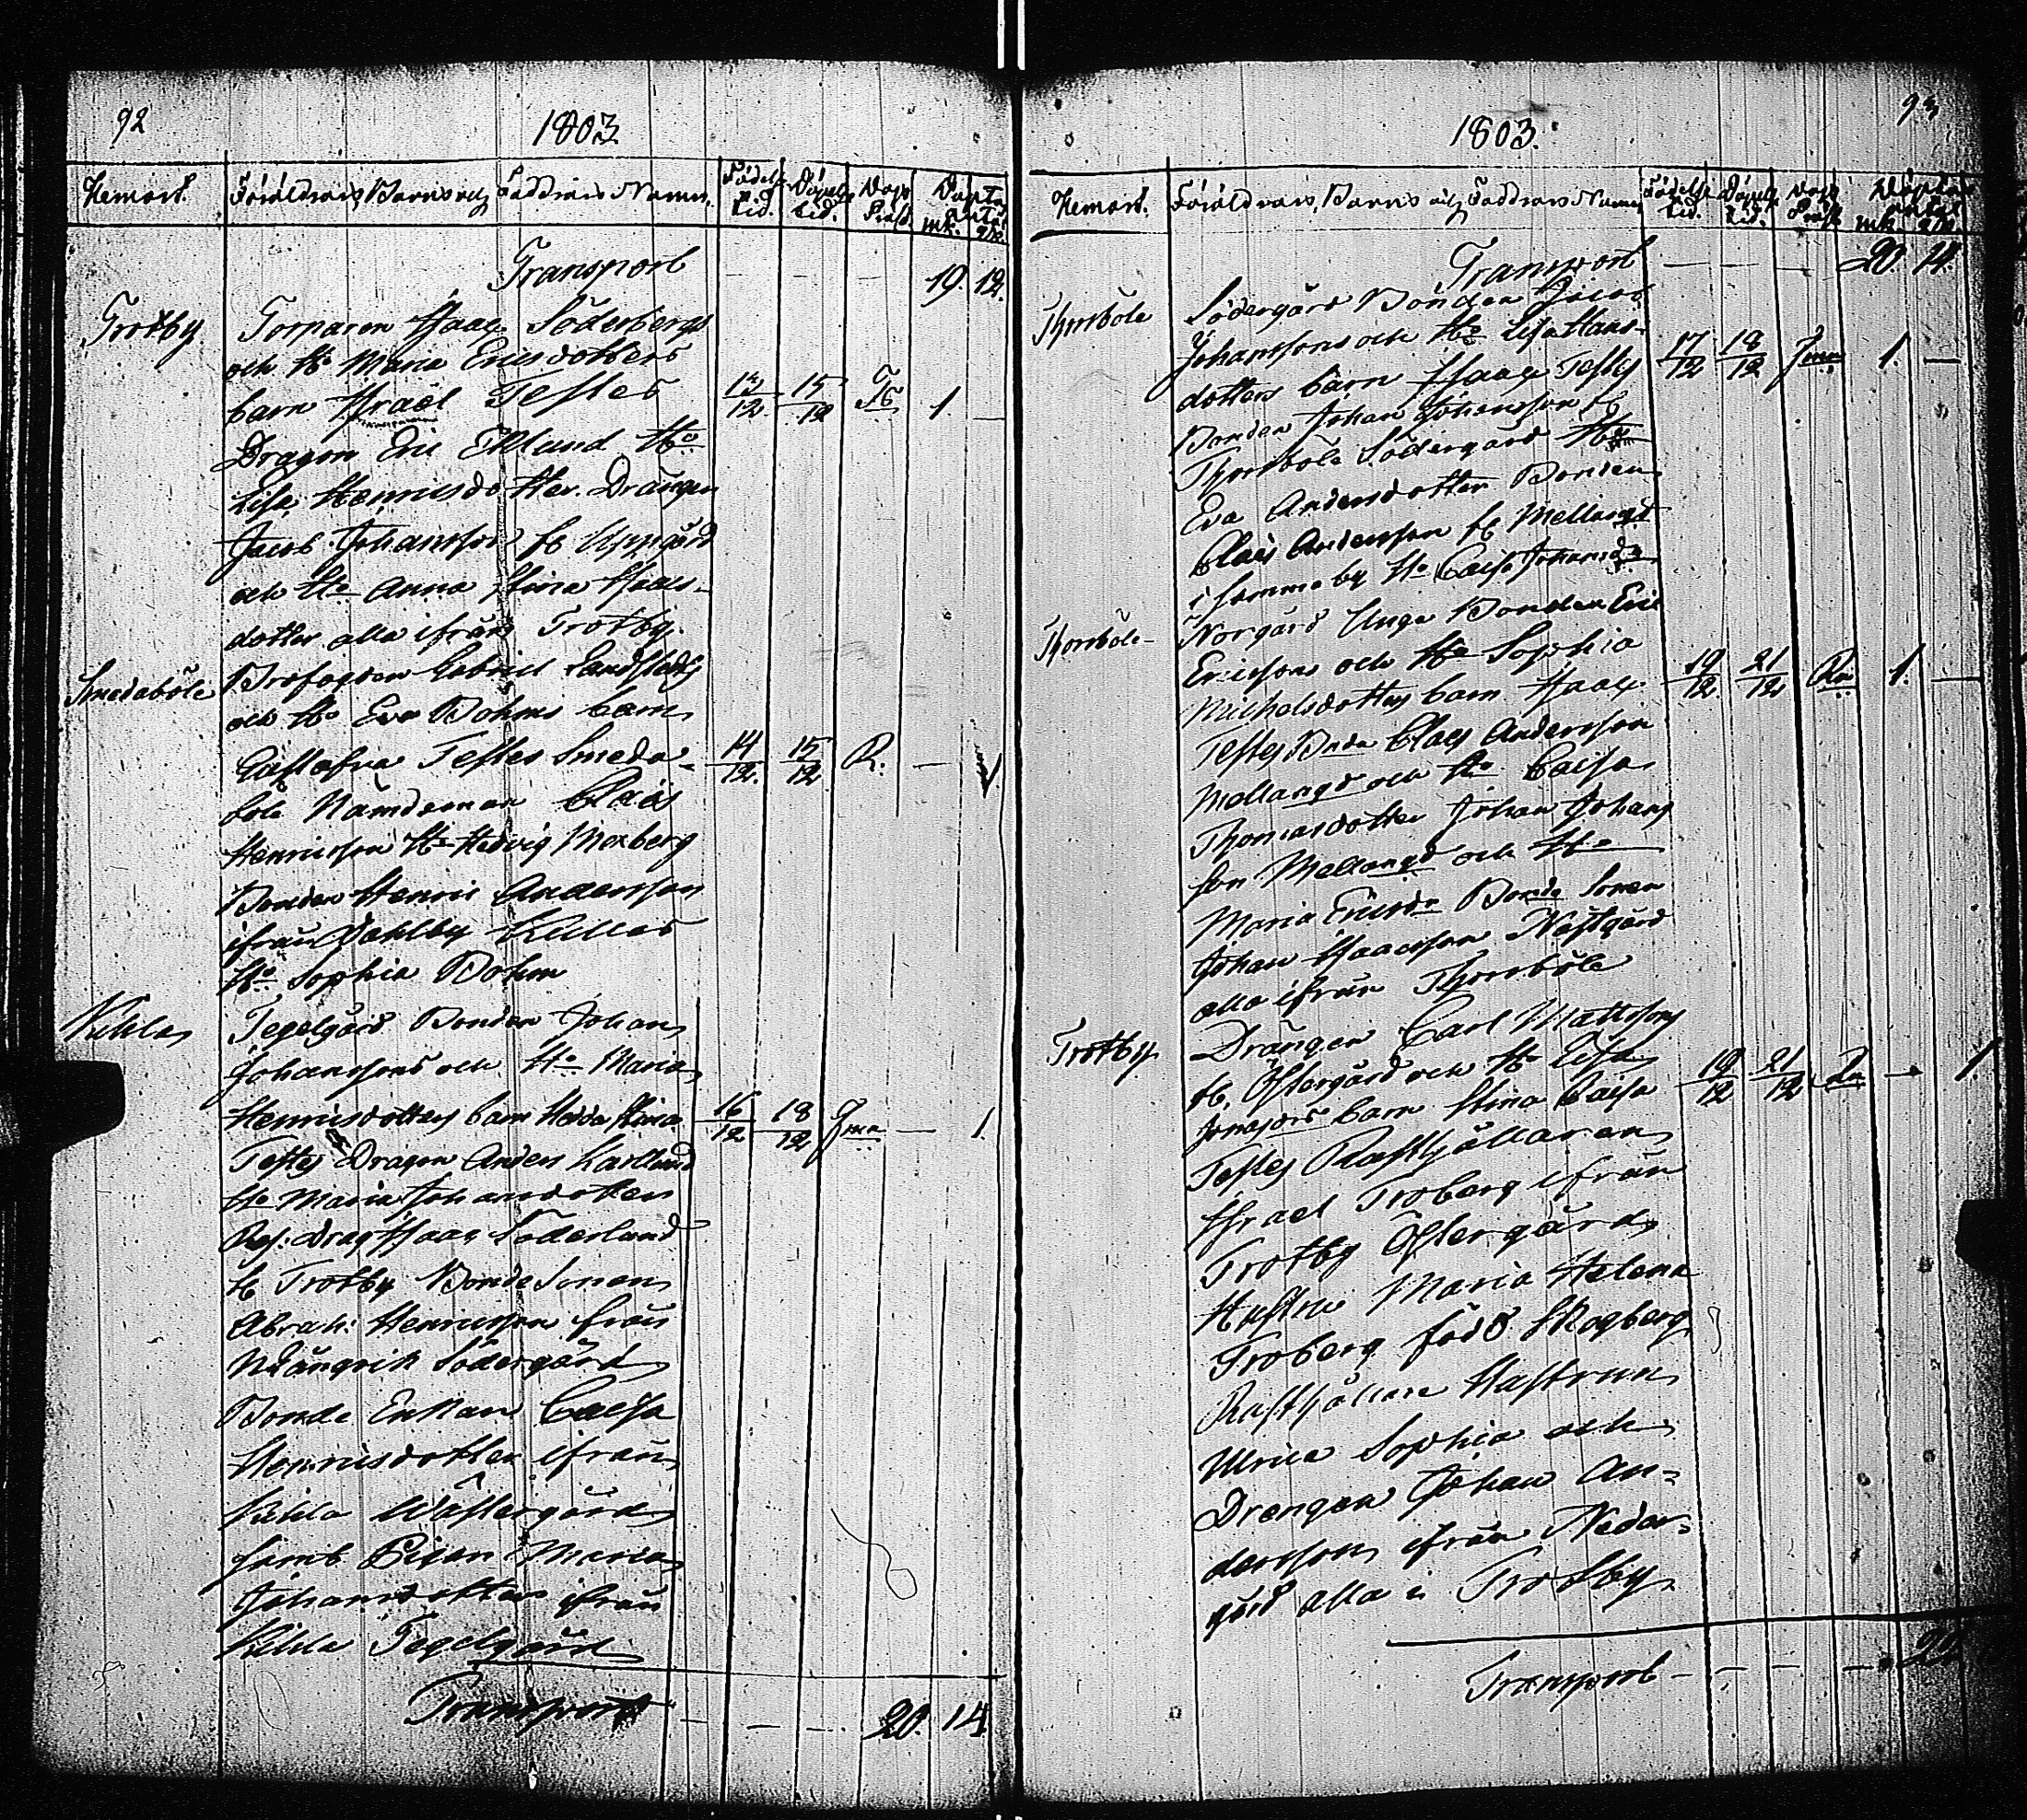 92
1803.
Hemort. Föräldrars, Barns och Faddrars Namn. Födelse tid. Döpelse tid. Dop Präst Döpta antal mk. qk.
Transport — — — — 19. 12.
Trotby Torparen Isaac Söderbergs
och Hu Maria Ericsdotters
barn Israël Testes 13/12 15/12 1. —
Dragon Eric Eklund Hu
Lisa Henricsdotter. Drängen
Jacob Johansson fr Uppgård
och Hu Anna Stina Isaacs-
dotter alla ifrån Trotby.
Smedaböle Brofogden Gabriel Landstedts
och Hu Eva Bohms barn
Gustafva Testes Smeda- 14/12. 15/12 R. — 1
böle Nämdeman Claës
Henricsson Hu Hedvig Mexberg
Bonden Henric Andersson
ifrån Dahlby Killas
Hu Sophia Bohm
Kihla Tegelgård Bonden Johan
Johanssons och Hu Maria
Henricsdotters barn Hedda Stina 16/12 18/12 — 1.
Testes Dragon Anders Karllund
Hu Maria Johansdotter
Res: Drag Isaac Söderlund
fr Trotby Bonde Sonen
Abrah: Henricsson från
Södergård
Bonde Enkan Caisa
Henricsdotter ifrån
Kihla Wästergård
samt Pigan Maria
Johansdotter ifrån
Kihla Tegelgård
Transport — — — 20. 14
93
1803.
Hemort. Föräldrars, Barns och Faddrars Namn Födelse tid. Döpelse tid. Dop Präst Döpta antal mk. qk.
Transport — — — 20. 14.
Thorsböle Södergård Bonden Jacob
Johanssons och Hu Lisa Hans-
dotters barn Isaac Testes 17/12 18/12 1. —
Bonden Johan Johansson fr
Thorsböle Södergård Hu
Eva Andersdotter Bonden
Claës Andersson fr Mellangd
i samma by Hu Caisa Johansdr
Thorsböle Norgård Unge Bonden Eric
Ericssons och Hu Sophia
Michelsdotters barn Isaac 19/12 21/12 1. —
Testes Bonde Claes Andersson
Mellangd och Hu Caisa
Thomasdotter Johan Johans
son Mellangd och Hu
Maria Ericsdr Bonde Sonen
Johan Isaacsson Nästgård
alla ifrån Thorsböle
Trotby. Drängen Carl Mattssons
fr. Östergård och Hu Lisa
Jonasdrs barn Stina Caisa 19/12 21/12 — 1.
Testes Rusthållaren
Israel Troberg ifrån
Trotby Östergård
Hustru Maria Helena
Troberg född Skogberg
Rusthållare Hustrun
Ulrica Sophia och
Drengen Johan An-
dersson ifrån Neder-
gård alla i Trotby
Transport — — — —